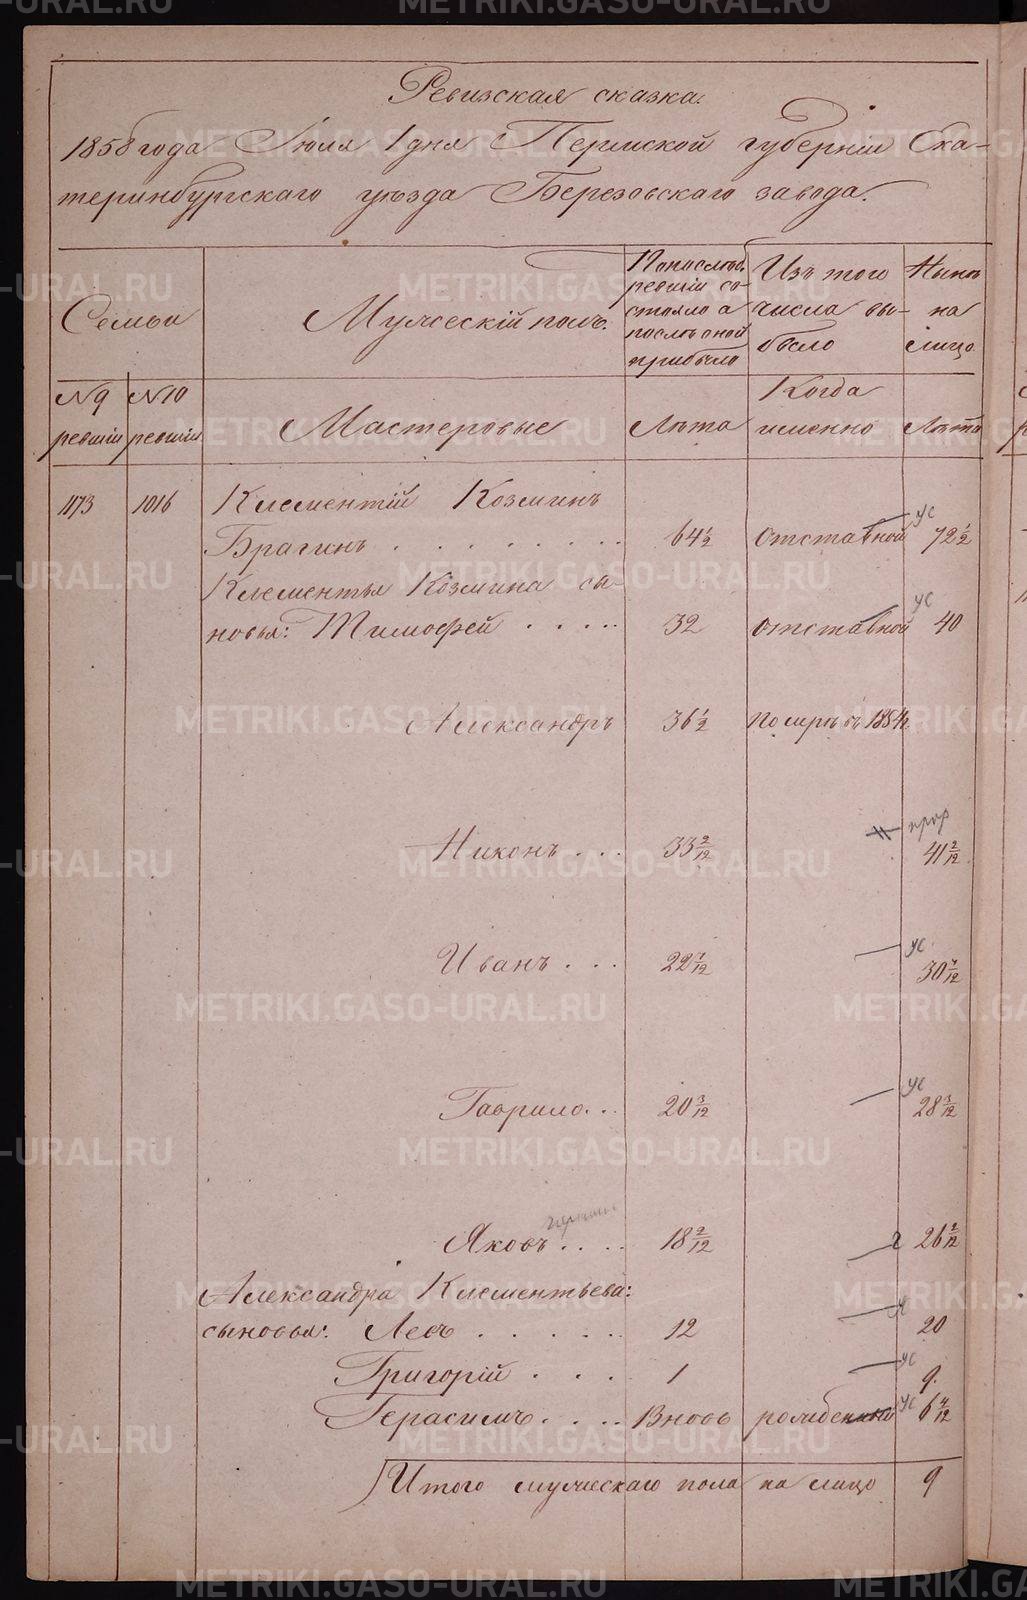 Ревизская сказка.
1858 года Июля 1 дня Пермской губернiи Ека-
теринбургскаго уѣзда Березовскаго завода.
Семьи
Мужескiй полъ.
По послѣд. ревизiи состояло а послѣ оной прибыло
Изъ того числа выбыло
Нынѣ на лицо
№ 9 ревизiи
№ 10 ревизiи
Мастеровые
Лѣта
Когда именно
Лѣта
1173 1016 Клементiй Козминъ
Брагинъ 64½ отставной ус 72½
Клементья Козмина сы-
новья: Тимофей 32 отставной ус 40
Александръ 36½ померъ въ 1854 г.
Никонъ 33 2/12 41 2/12
Иванъ 22 7/12 ус 30 7/12
Гаврило 20 3/12 ус 28 3/12
Яковъ 18 2/12 26 2/12
Александра Клементьева:
сыновья: Левъ 12 20
Григорiй 1 ус 9.
Герасимъ Вновь рожденный ус 6 4/12
Итого мужескаго пола на лицо 9
METRIKI.GASO-URAL.RU